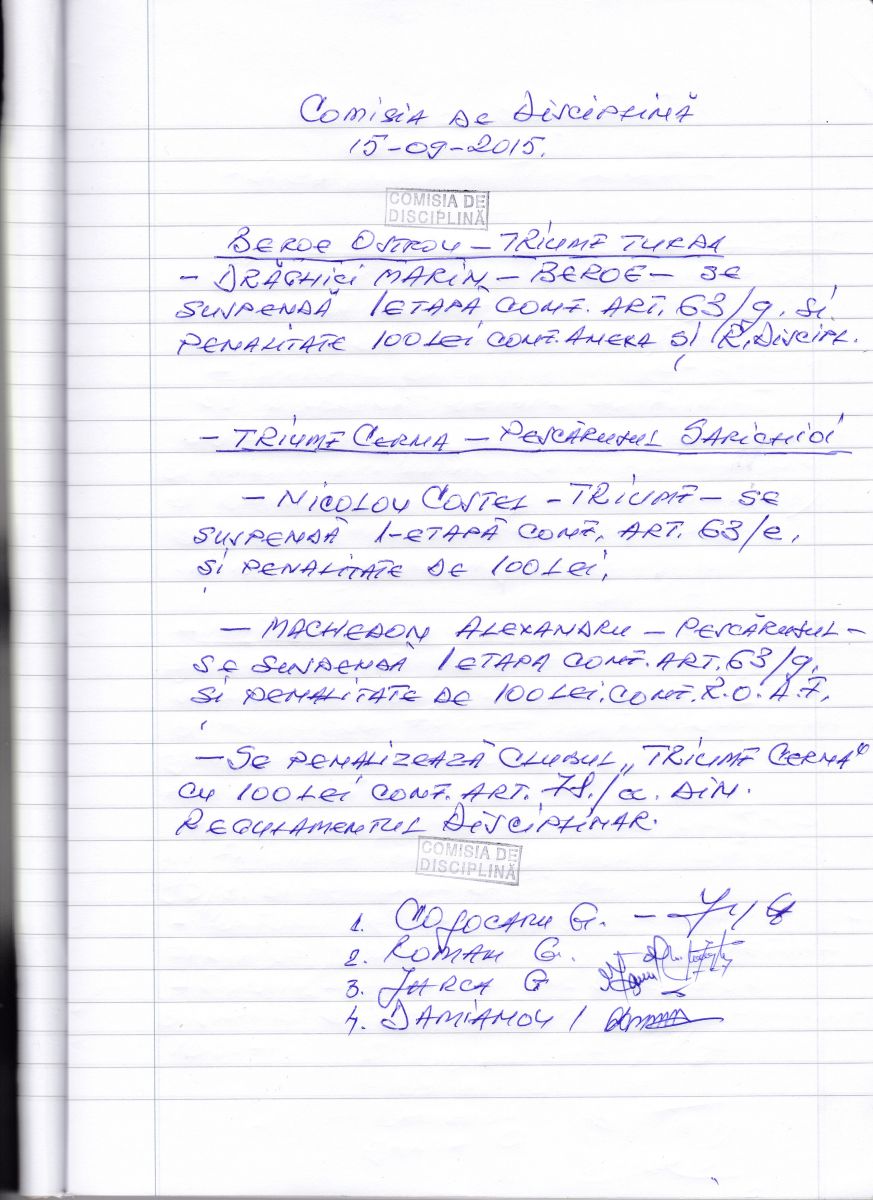 COMISIA DE DISCIPLINĂ
15-09-2015.
COMISIA DE
DISCIPLINĂ
BEROE OSTROV – TRIUMF TURDA
– DRĂGHICI MARIN – BEROE – SE
SUSPENDĂ 1 ETAPĂ CONF. ART. 63/g. si
PENALITATE 100 LEI CONF. ANEXA ȘI R. DISCIPL.
– TRIUMF CERNA – PESCĂRUSUL SARICHIOI
– NICOLOV COSTEL – TRIUMF – SE
SUSPENDĂ 1-ETAPĂ CONF. ART. 63/e,
ȘI PENALITATE DE 100 LEI,
– MACHEDON ALEXANDRU – PESCĂRUSUL –
SE SUSPENDĂ 1 ETAPA CONF. ART. 63/g,
ȘI PENALITATE DE 100 LEI. CONF. R.O.A.F,
– SE PENALIZEAZĂ CLUBUL „TRIUMF CERNA"
CU 100 LEI CONF. ART. 78./a. DIN.
REGULAMENTUL DISCIPLINAR.
COMISIA DE
DISCIPLINĂ
1. COJOCARU G. –
2. ROMAN G.
3. JURCA G
4. DAMIANOV I